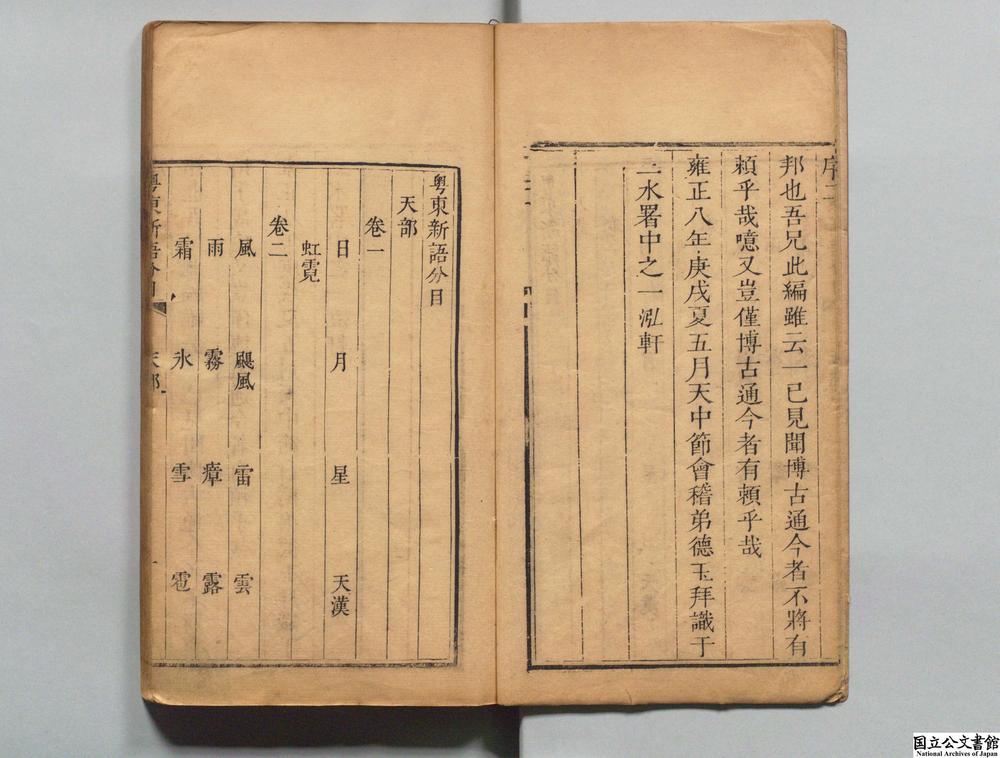 序二
邦也吾兄此編雖云一已見聞博古通今者不將有
頼乎哉噫又豈僅博古通今者有頼乎哉
雍正八年庚戌夏五月天中節會稽弟德玉拜識于
三水署中之一泓軒
粤東新語分目
天部
卷一
日 月 星 天漢
虹霓
卷二
風 颶風 雷 雲
雨 霧 瘴 露
霜 氷 雪 雹
粤東新語分目 天部 一
国立公文書館
National Archives of Japan